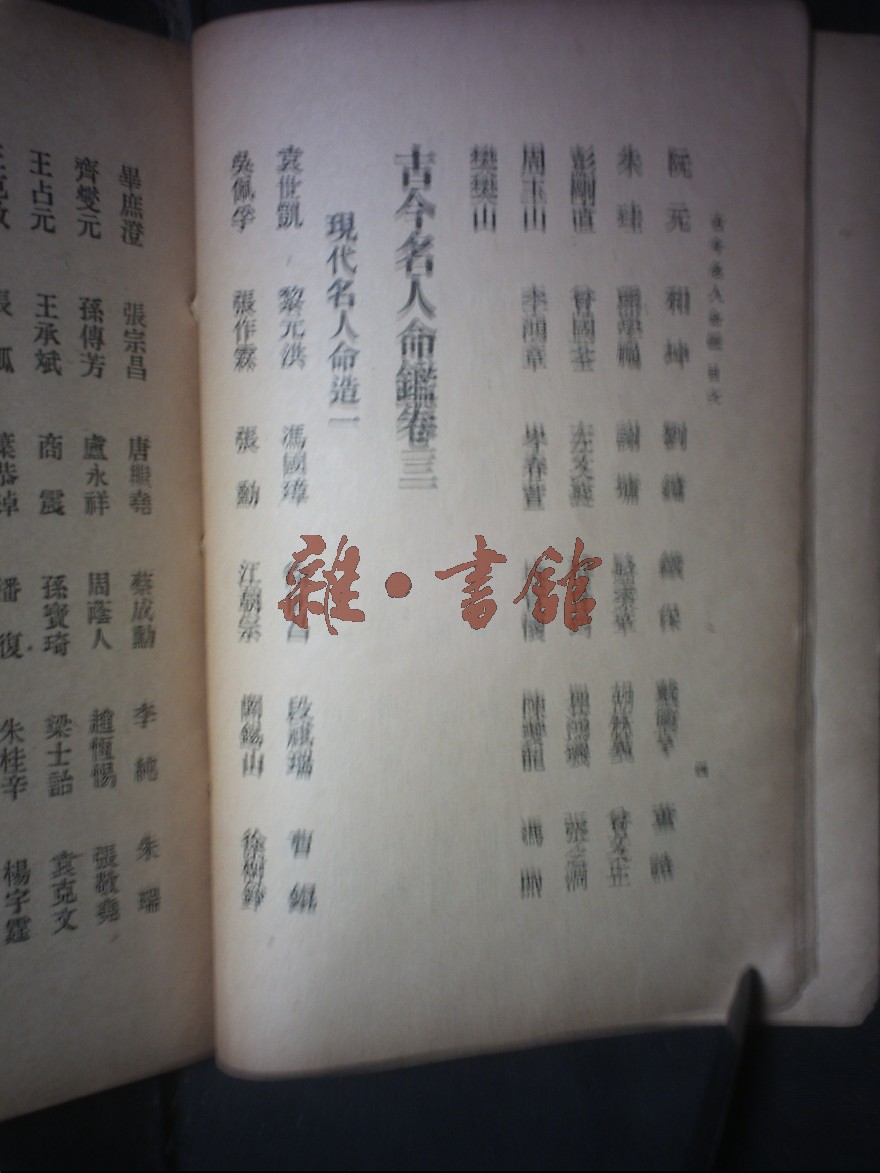 古今名人命鑑 目次
四
阮元 和珅 劉鏞 鐵保 戴衢亨 董誥
朱珪 熊學鵬 謝墉 胡林翼 曾文正
彭剛直 曾國荃 左文襄 張之洞
周玉山 李鴻章 岑春萱 馮煦
樊樊山
古今名人命鑑卷三
現代名人命造二
袁世凱 黎元洪 馮國璋 段祺瑞 曹錕
吳佩孚 張作霖 張勳 江朝宗 閻錫山 徐樹錚
畢庶澄 張宗昌 唐繼堯 蔡成勳 李純 朱瑞
齊燮元 孫傳芳 盧永祥 周蔭人 趙恆惕 張敬堯
王占元 王承斌 商震 孫寶琦 梁士詒 袁克文
潘復 朱桂辛 楊宇霆
雜·書館